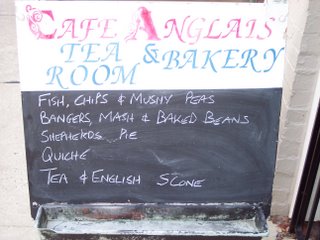 CAFE ANGLAIS
TEA & BAKERY
ROOM
FISH, CHIPS & MUSHY PEAS
BANGERS, MASH & BAKED BEANS
SHEPHERDS PIE
QUICHE
TEA & ENGLISH SCONE